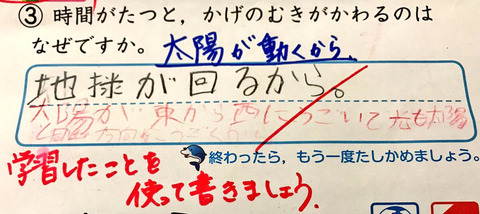 ③ 時間がたつと，かげのむきがかわるのは
なぜですか。 太陽が動くから.
地球が回るから。
太陽が東から西にうごいて 太陽
終わったら，もう一度たしかめましょう。
学習したことを
使って書きましょう.